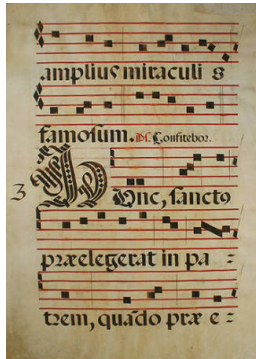 ampliuſ miraculi &
famoſum. Pſ. Confitebor.
3 Hunc, ſanctꝰ
præelegerat in pa =
trem, quãdo præ e =